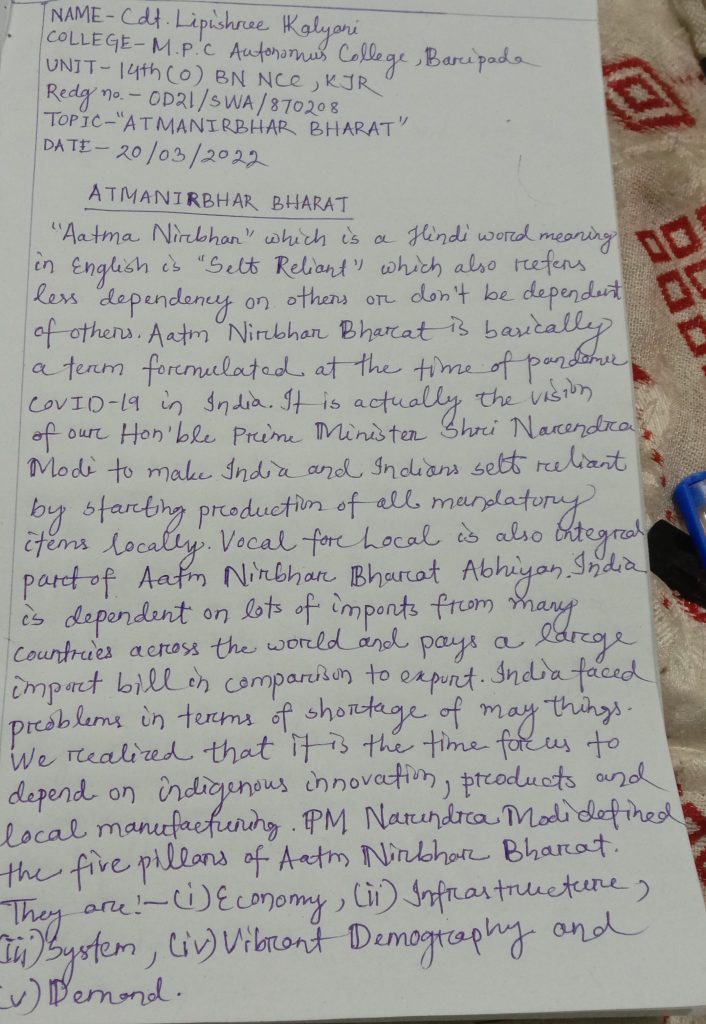 NAME- Cdt. Lipishree Kalyani
COLLEGE- M.P.C Autonomus College, Baripada
UNIT- 14th (O) BN NCC, KJR
Redg no. - OD21/SWA/870208
TOPIC-"ATMANIRBHAR BHARAT"
DATE- 20/03/2022
ATMANIRBHAR BHARAT
"Aatma Nirbhar" which is a Hindi word meaning
in English is "Self Reliant" which also refers
less dependency on others or don't be dependent
of others. Aatm Nirbhar Bharat is basically
a term formulated at the time of pandemic
COVID-19 in India. It is actually the vision
of our Hon'ble Prime Minister Shri Narendra
Modi to make India and Indians self reliant
by starting production of all mandatory
items locally. Vocal for Local is also integral
part of Aatm Nirbhar Bharat Abhiyan. India
is dependent on lots of imports from many
countries across the world and pays a large
import bill in comparison to export. India faced
problems in terms of shortage of may things.
We realized that it is the time for us to
depend on indigenous innovation, products and
local manufacturing. PM Narendra Modi defined
the five pillars of Aatm Nirbhar Bharat.
They are:- (i) Economy, (ii) Infrastructure,
(iii) System, (iv) Vibrant Demography and
(v) Demand.